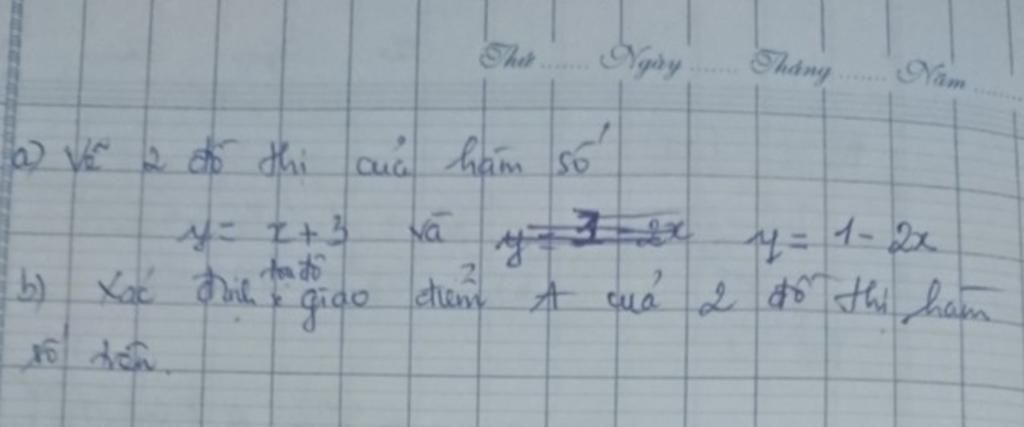 Thứ ...... Ngày ...... Tháng ...... Năm ......
a) Vẽ 2 đồ thị của hàm số
y = x + 3 và y = 1 - 2x
b) Xác định tọa độ giao điểm A của 2 đồ thị hàm
số trên.